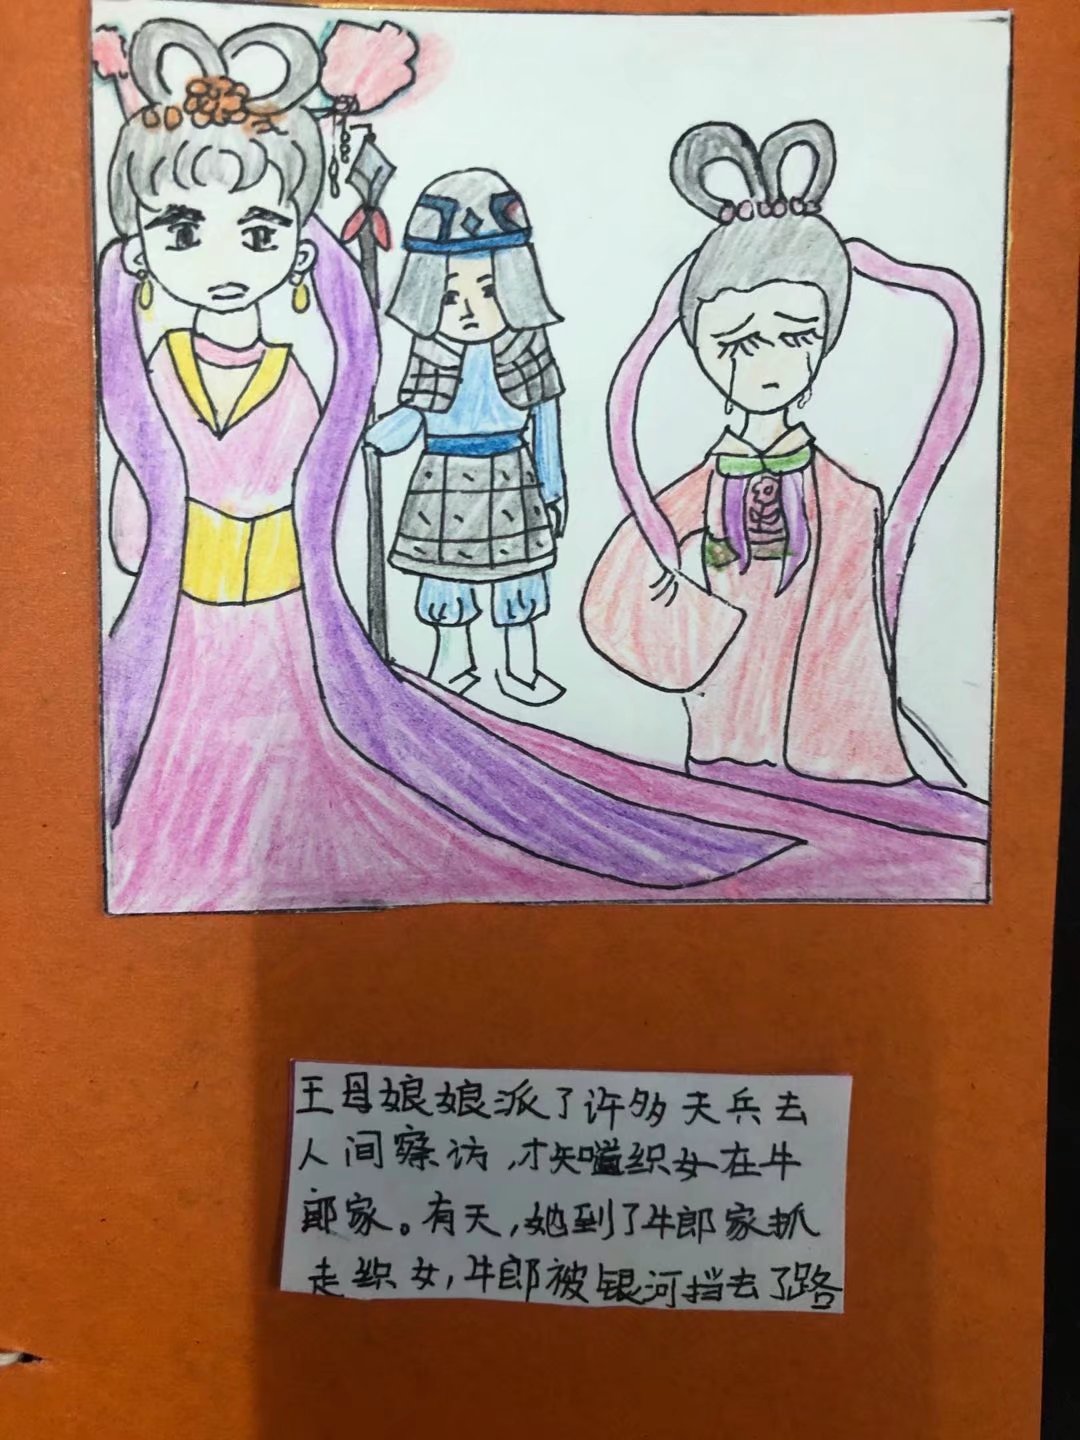 王母娘娘派了许多天兵去
人间察访,才知 织女在牛
郎家。有天,她到了牛郎家抓
走织女,牛郎被银河挡去了路